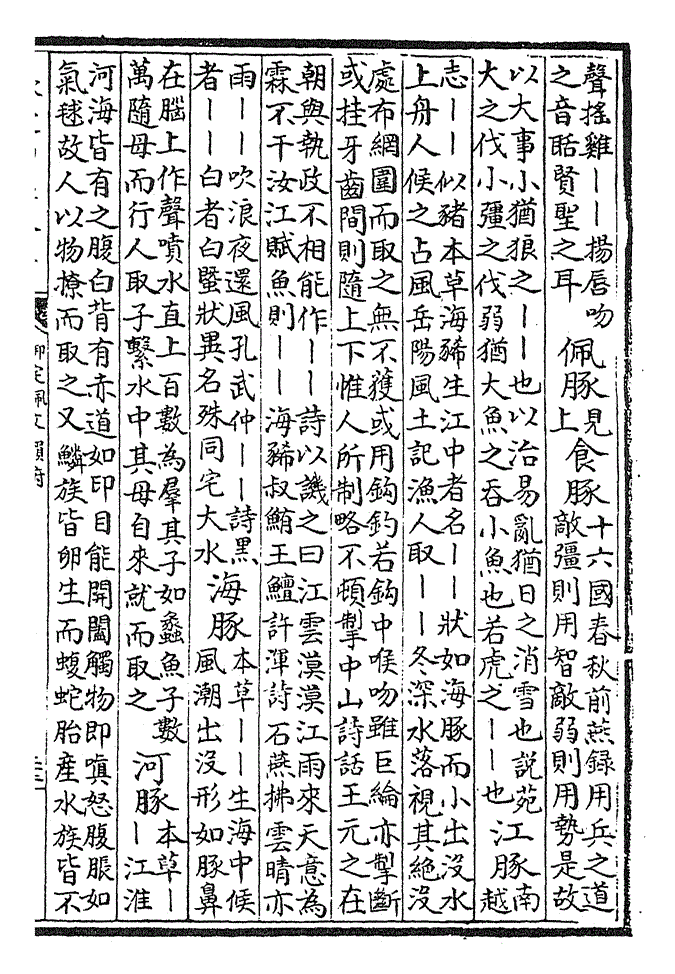 聲搖雞丨丨揚唇吻
之音聒賢聖之耳
佩豚
見
上
食豚
十六國春秋前燕録用兵之道
敵彊則用智敵弱則用勢是故
以大事小猶狼之丨丨也以治易亂猶日之消雪也說苑
大之伐小彊之伐弱猶大魚之吞小魚也若虎之丨丨也
江豚
南
越
志丨丨似豬本草海豨生江中者名丨丨狀如海豚而小出沒水
上舟人候之占風岳陽風土記漁人取丨丨冬深水落視其絕沒
處布網圍而取之無不獲或用鈎釣若鈎中喉吻雖巨綸亦掣斷
或挂牙齒間則隨上下惟人所制略不頓掣中山詩話王元之在
朝與執政不相能作丨丨詩以譏之曰江雲漠漠江雨來天意為
霖不干汝江賦魚則丨丨海豨叔鮪王鱣許渾詩石燕拂雲晴亦
雨丨丨吹浪夜還風孔武仲丨丨詩黑
者丨丨白者白䱐狀異名殊同宅大水
海豚
本草丨丨生海中候
風潮出沒形如豚鼻
在腦上作聲噴水直上百數為羣其子如蠡魚子數
萬隨母而行人取子繫水中其母自來就而取之
河豚
本草丨
丨江淮
河海皆有之腹白背有赤道如印目能開闔觸物即嗔怒腹脹如
氣毬故人以物撩而取之又鱗族皆卵生而蝮蛇胎產水族皆不
御定佩文韻府